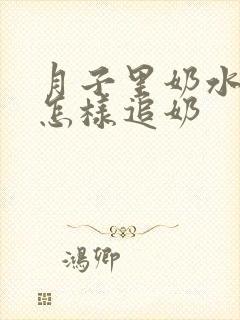 月子里奶水
怎样追奶
鴻卿